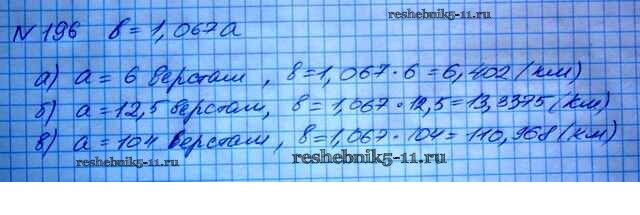 reshebnik5-11.ru
№ 196 в = 1,067а
а) а = 6 верстам , в = 1,067 · 6 = 6,402 (км)
б) а = 12,5 верстам, в = 1,067 · 12,5 = 13,3375 (км)
в) а = 104 верстам , в = 1,067 · 104 = 110,968 (км)
reshebnik5-11.ru reshebnik5-11.ru